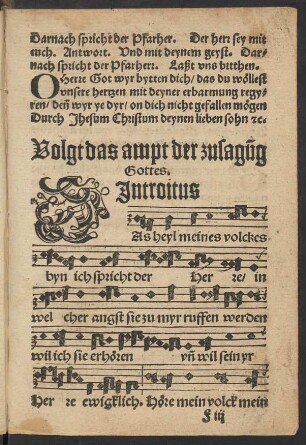 Darnach spricht der Pfarher. Der herr sey mit
euch. Antwort. Und mit deynem geyst. Dar-
nach spricht der Pfarherr. Laßt vns bitthen.
O Herre Got wyr bytten dich/ das du wöllest
vnsere hertzen mit deyner erbarmung regy-
ren/ deñ wyr ye dyr/ on dich nicht gefallen mögen
Durch Jhesum Christum deynen lieben sohn ꝛc.
Volgt das ampt der zusagũg
Gottes.
Introitus
DAs heyl meines volckes
byn ich spricht der Her re/ in
wel cher angst sie zu myr ruffen werden
wil ich sie erhören vñ wil sein yr
Her re ewigklich. Höre mein volck mein
F iij